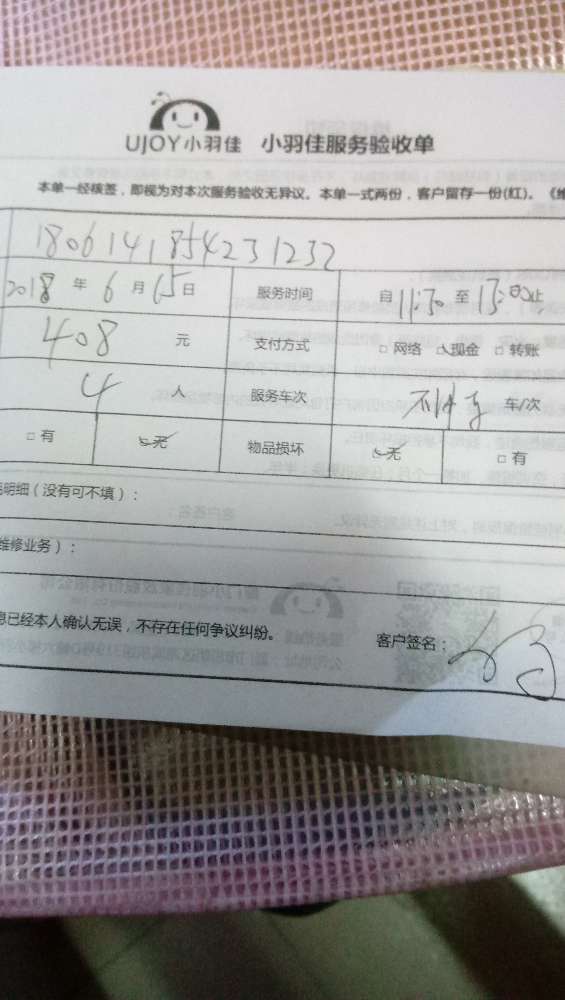 UJOY小羽佳 小羽佳服务验收单
本单一经核签，即视为对本次服务验收无异议。本单一式两份，客户留存一份(红)。《维
180614185423 1232
2018 年 6 月 15 日 服务时间 自 11:30 至 15:00 止
408 元 支付方式 □ 网络 □ 现金 □ 转账
4 人 服务车次 车/次
□ 有 □ 无 物品损坏 □ 无 □ 有
明细（没有可不填）：
维修业务）：
息已经本人确认无误，不存在任何争议纠纷。 客户签名：